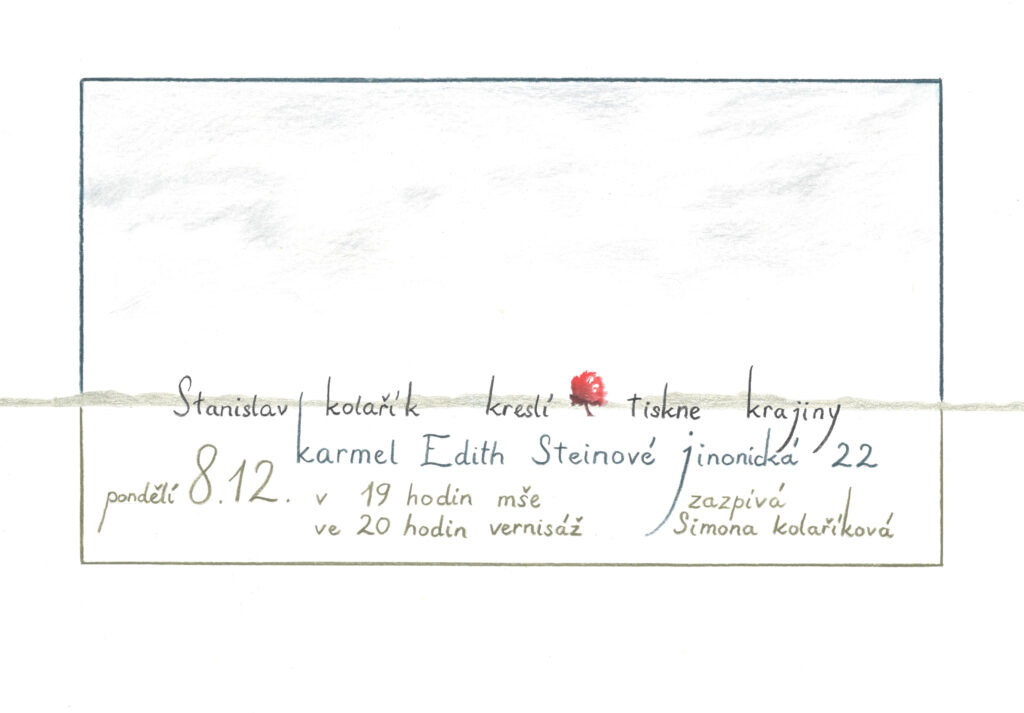 Stanislav kolařík kreslí tiskne krajiny
karmel Edith Steinové jinonická 22
pondělí 8.12. v 19 hodin mše
ve 20 hodin vernisáž
zazpívá
Simona kolaříková